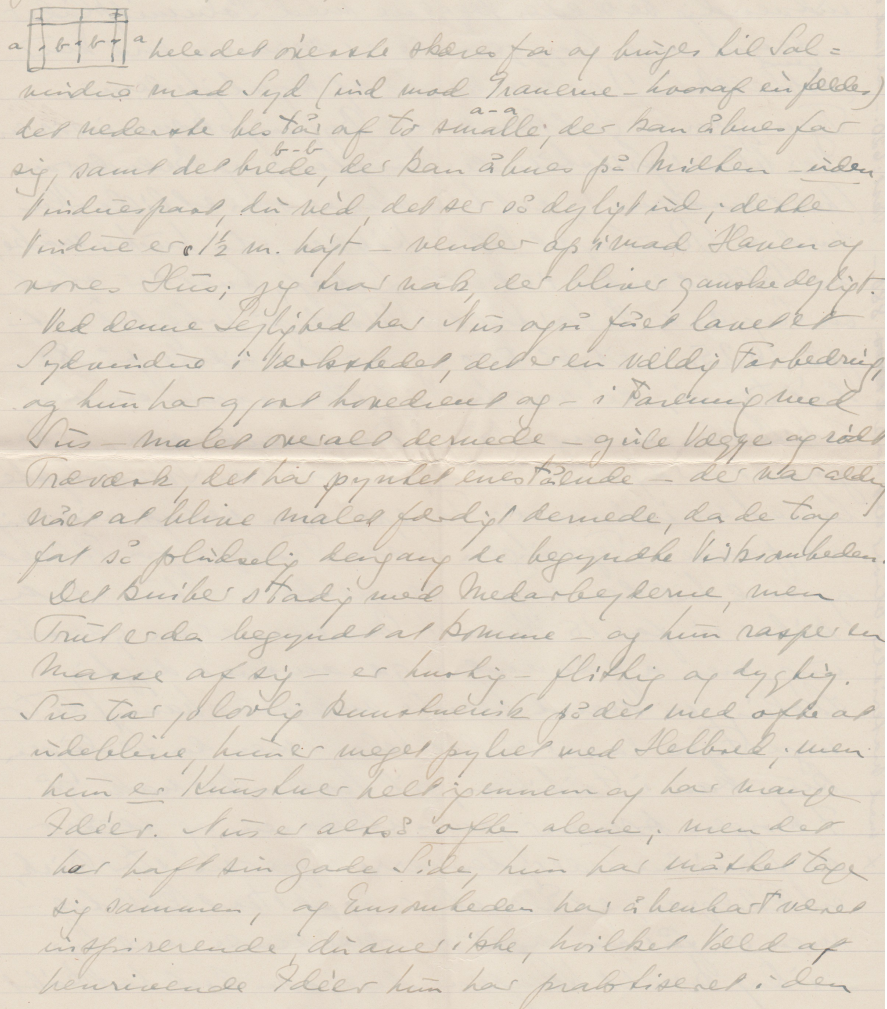 a b b a hele det øverste skæres fra og bruges til Sol=
vindue mod Syd (ind mod Granerne – hvoraf en fældes)
det nederste består af to smalle, der kan åbnes for
a–a
sig, samt det brede, der kan åbnes på Midten – uden
b–b
Vinduespost, du véd, det ser så dejligt ud; dette
Vindue er 1½ m. højt – vender op imod Haven og
vores Hus; jeg tror nok, der bliver ganske dejligt.
Ved denne Lejlighed har Nus også fået lavet et
Sydvindue i Værkstedet, det er en vældig Forbedring,
og hun har gjort hovedrent og – i Forening med
Sus – malet overalt dernede – gule Vægge og rødt
Træværk, det har pyntet enestående – der var aldrig
nået at blive malet færdigt dernede, da de tog
fat så pludselig dengang de begyndte Virksomheden.
Det kniber stadig med Medarbejderne, men
Trut er da begyndt at komme – og hun rasper en
Masse af sig – er hurtig – flittig og dygtig.
Sus tar jo lovlig kunstnerisk på dét med ofte at
udeblive, hun er meget pylret med Helbred; men
hun er Kunstner helt igennem og har mange
Idéer. Nus er altså ofte alene; men det
har haft sin gode Side, hun har måttet tage
sig sammen, og Ensomheden har åbenbart været
inspirerende, du aner ikke, hvilket Væld af
henrivende Idéer hun har praktiseret i den